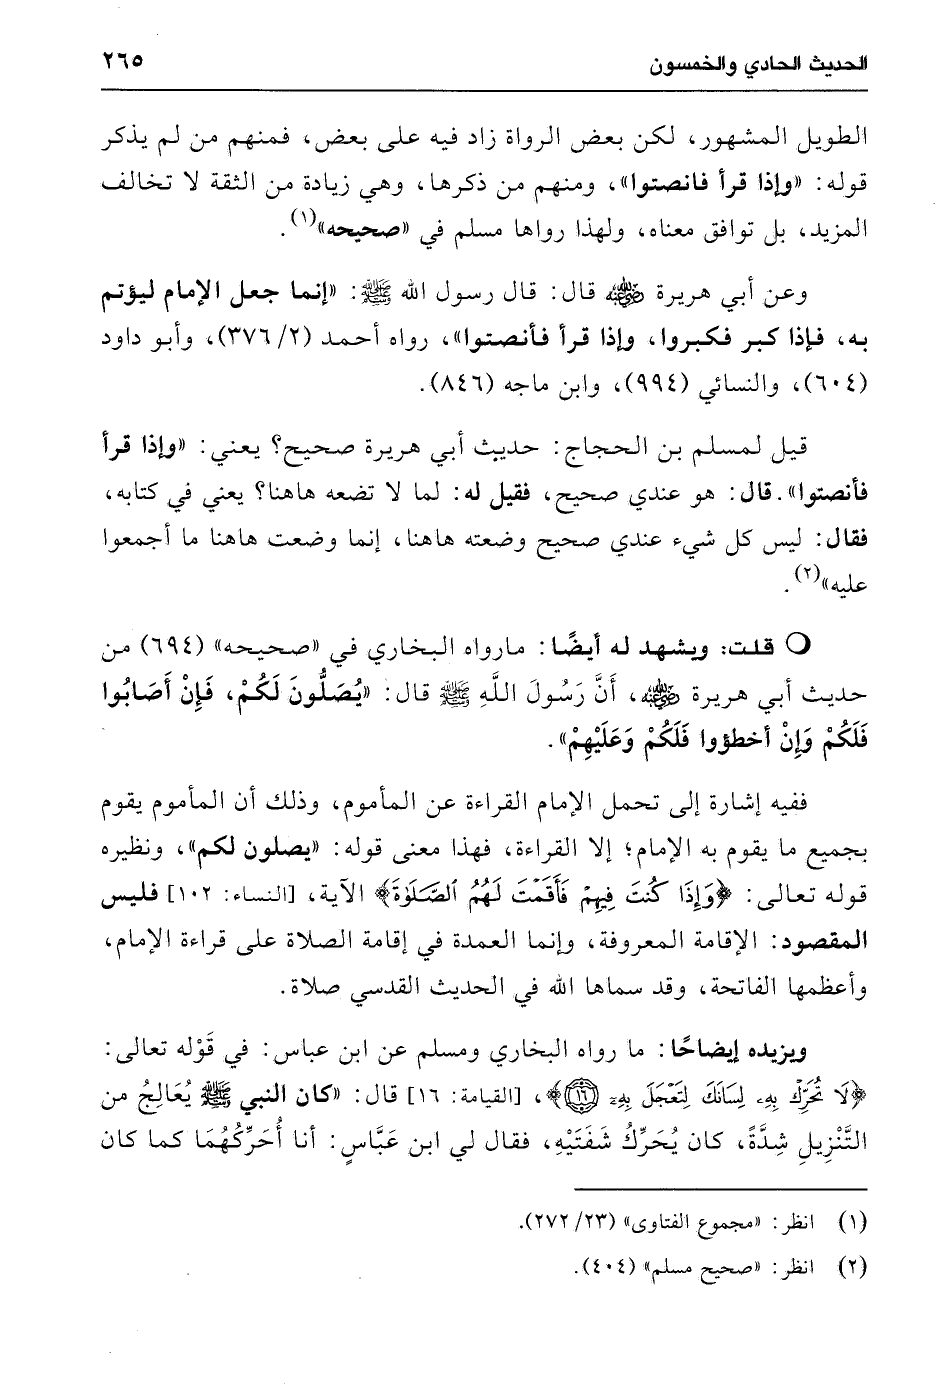 الحديث الحادي والخمسون ٢٦٥
الطويل المشهور، لكن بعض الرواة زاد فيه على بعض، فمنهم من لم يذكر
قوله: «وإذا قرأ فانصتوا»، ومنهم من ذكرها، وهي زيادة من الثقة لا تخالف
المزيد، بل توافق معناه، ولهذا رواها مسلم في «صحيحه»(١).
وعن أبي هريرة رضي الله عنه قال: قال رسول الله ﷺ: «إنما جعل الإمام ليؤتم
به، فإذا كبر فكبروا، وإذا قرأ فأنصتوا»، رواه أحمد (٣٧٦/٢)، وأبو داود
(٦٠٤)، والنسائي (٩٩٤)، وابن ماجه (٨٤٦).
قيل لمسلم بن الحجاج: حديث أبي هريرة صحيح؟ يعني: «وإذا قرأ
فأنصتوا». قال: هو عندي صحيح، فقيل له: لما لا تضعه هاهنا؟ يعني في كتابه،
فقال: ليس كل شيء عندي صحيح وضعته هاهنا، إنما وضعت هاهنا ما أجمعوا
عليه»(٢).
○ قلت: ويشهد له أيضًا: مارواه البخاري في «صحيحه» (٦٩٤) من
حديث أبي هريرة رضي الله عنه، أَنَّ رَسُولَ اللَّهِ ﷺ قال: «يُصَلُّونَ لَكُمْ، فَإِنْ أَصَابُوا
فَلَكُمْ وَإِنْ أخطؤوا فَلَكُمْ وَعَلَيْهِمْ».
ففيه إشارة إلى تحمل الإمام القراءة عن المأموم، وذلك أن المأموم يقوم
بجميع ما يقوم به الإمام؛ إلا القراءة، فهذا معنى قوله: «يصلون لكم»، ونظيره
قوله تعالى: ﴿وَإِذَا كُنتَ فِيهِمْ فَأَقَمْتَ لَهُمُ ٱلصَّلَوٰةَ﴾ الآية، [النساء: ١٠٢] فليس
المقصود: الإقامة المعروفة، وإنما العمدة في إقامة الصلاة على قراءة الإمام،
وأعظمها الفاتحة، وقد سماها الله في الحديث القدسي صلاة.
ويزيده إيضاحًا: ما رواه البخاري ومسلم عن ابن عباس: في قَوْله تعالى:
﴿لَا تُحَرِّكْ بِهِۦ لِسَانَكَ لِتَعْجَلَ بِهِۦٓ ١٦﴾، [القيامة: ١٦] قال: «كان النبي ﷺ يُعَالِجُ من
التَّنْزِيلِ شِدَّةً، كان يُحَرِّكُ شَفَتَيْهِ، فقال لي ابن عَبَّاسٍ: أنا أُحَرِّكُهُمَا كما كان
(١) انظر: «مجموع الفتاوى» (٢٧٢/٢٣).
(٢) انظر: «صحيح مسلم» (٤٠٤).